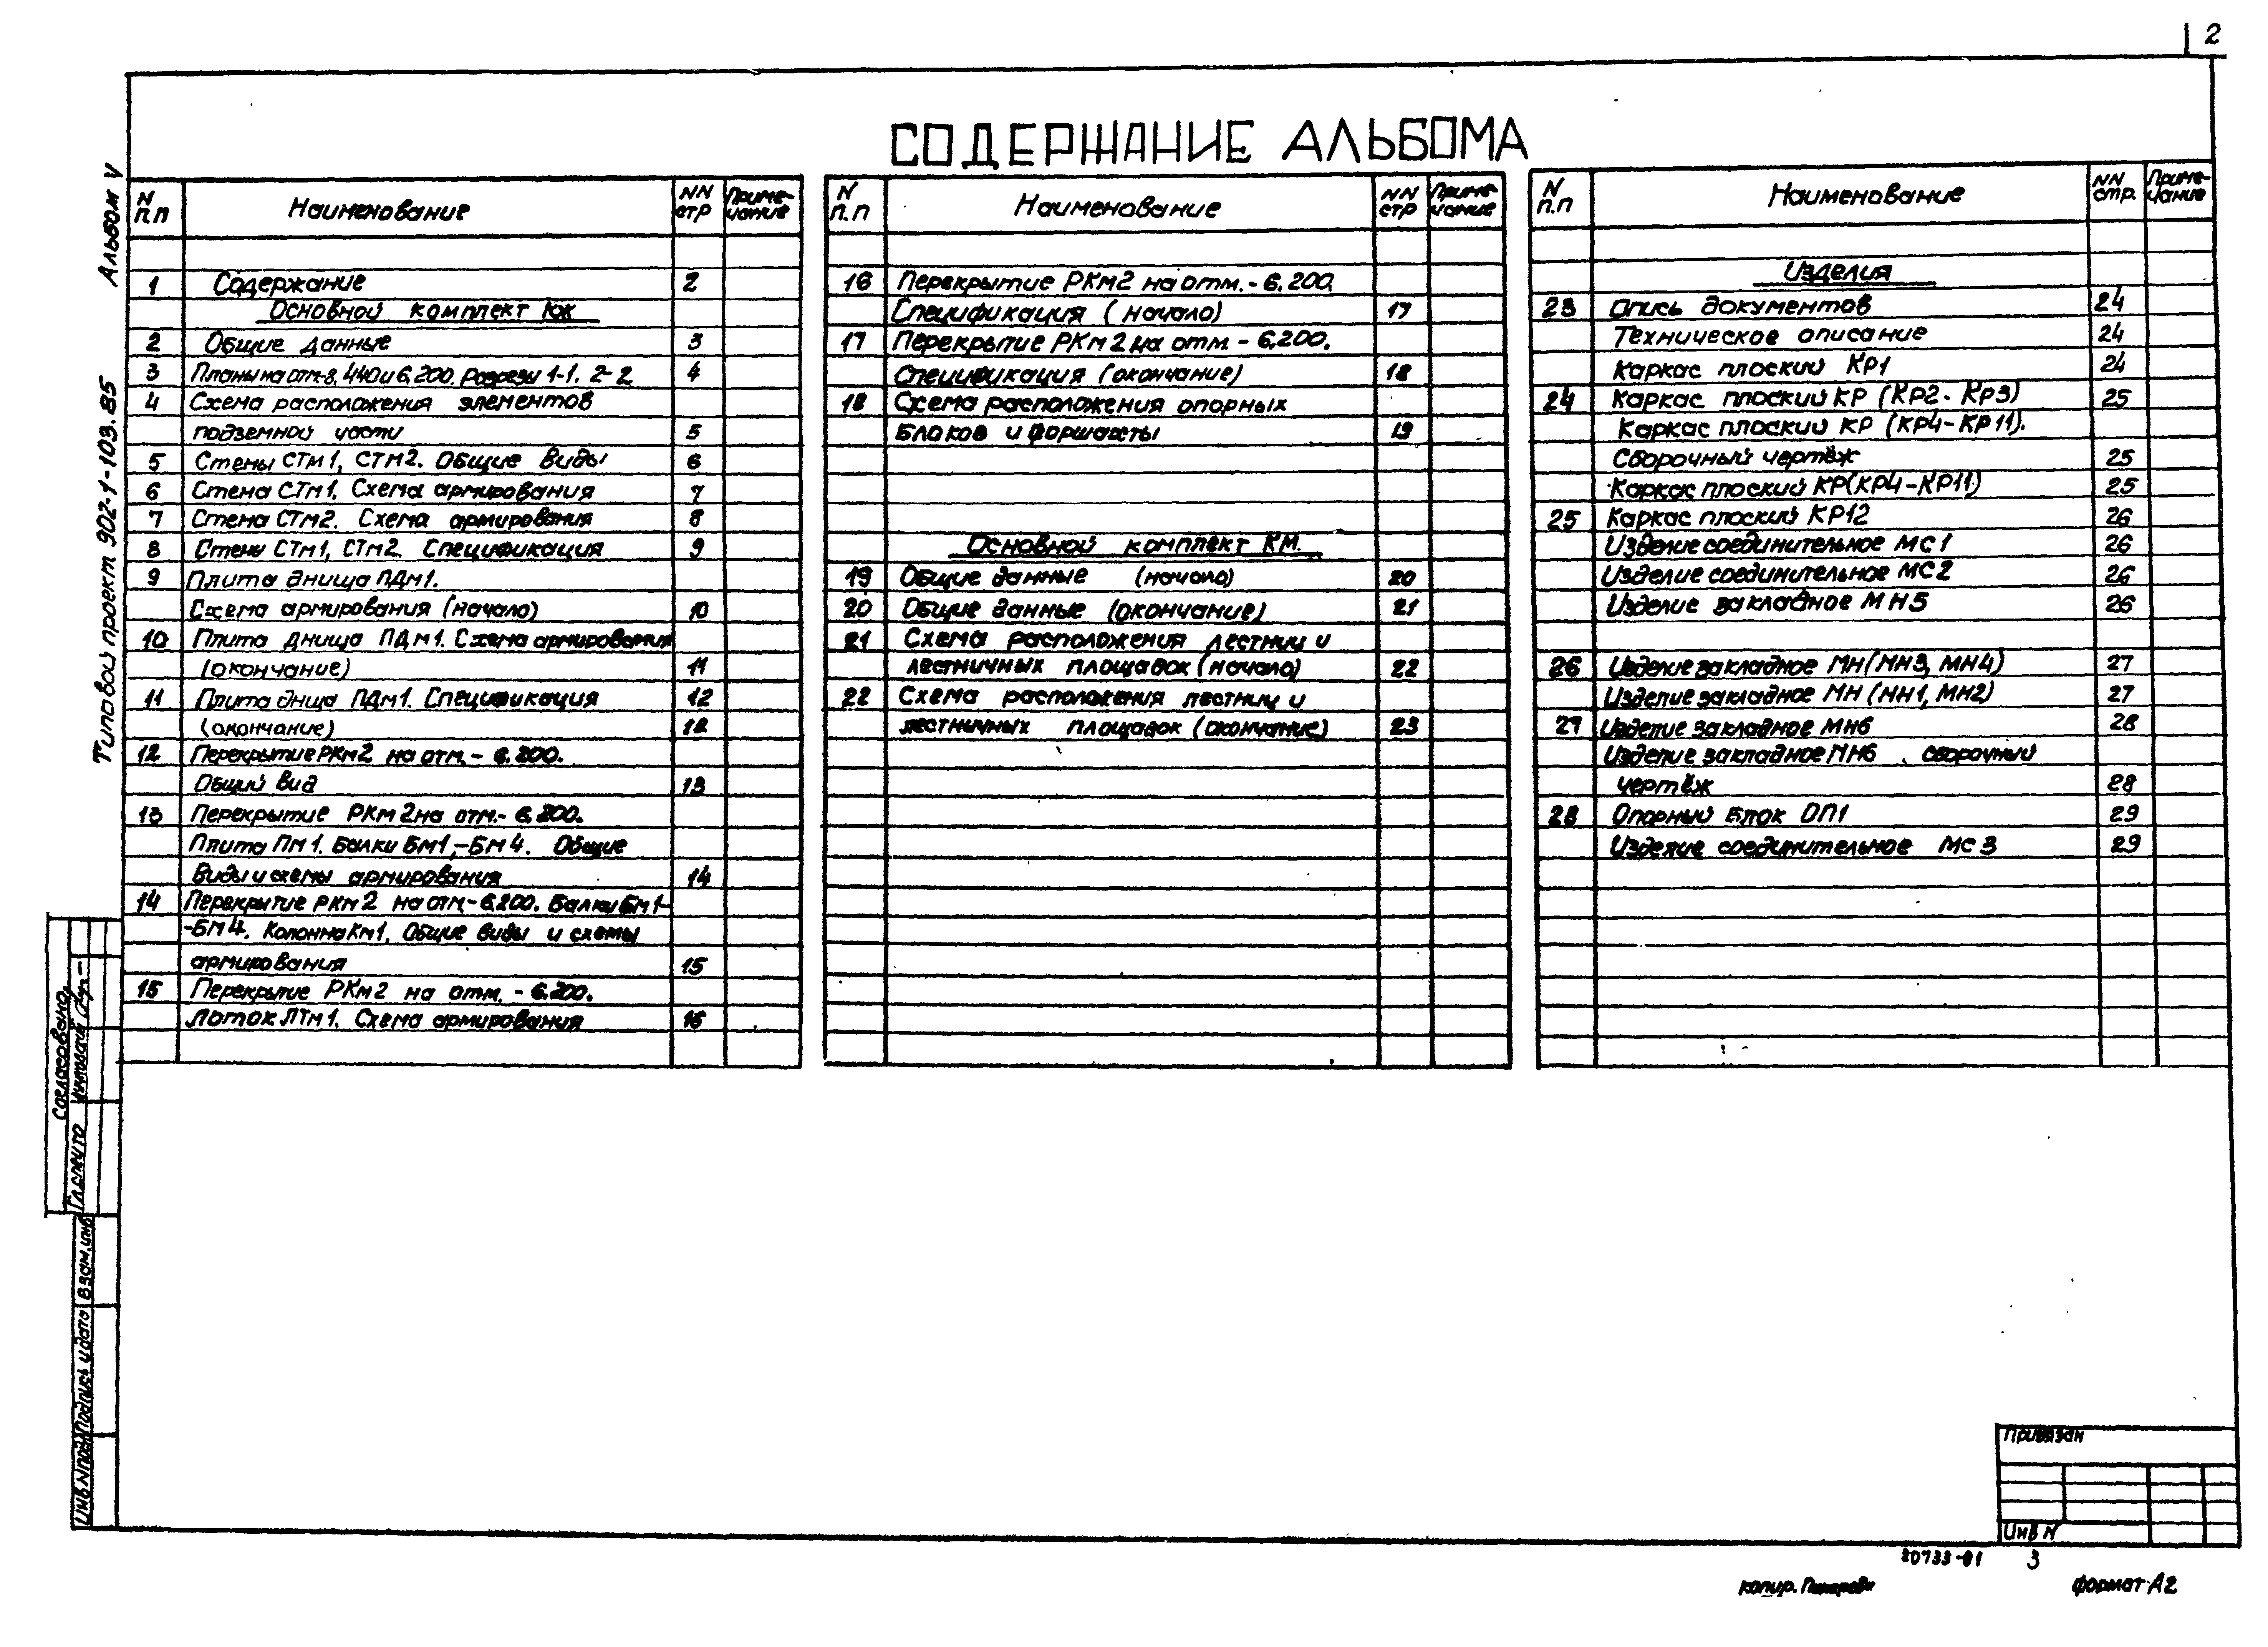 2
СОДЕРЖАНИЕ АЛЬБОМА
Альбом V
Типовой проект 902-1-103.85
N п.п Наименование NN стр Примечание
1 Содержание 2
Основной комплект КЖ
2 Общие данные 3
3 Планы на отм-8.440 и 6.200. Разрезы 1-1. 2-2 4
4 Схема расположения элементов
подземной части 5
5 Стены СТм1, СТм2. Общие виды 6
6 Стена СТм1. Схема армирования 7
7 Стена СТм2. Схема армирования 8
8 Стены СТм1, СТм2. Спецификация 9
9 Плита днища ПДм1.
Схема армирования (начало) 10
10 Плита днища ПДм1. Схема армирования
(окончание) 11
11 Плита днища ПДм1. Спецификация 12
(окончание) 12
12 Перекрытие РКм2 на отм. - 6.200.
Общий вид 13
13 Перекрытие РКм2 на отм.- 6.200.
Плита Пм1. Балки Бм1,-Бм4. Общие
виды и схемы армирования 14
14 Перекрытие РКм2 на отм.-6.200. Балки Бм1-
-Бм4. Колонна Км1. Общие виды и схемы
армирования 15
15 Перекрытие РКм2 на отм. - 6.200.
Лоток ЛТм1. Схема армирования 16
N п.п Наименование NN стр Примечание
16 Перекрытие РКм2 на отм. - 6.200.
Спецификация (начало) 17
17 Перекрытие РКм2 на отм - 6.200.
Спецификация (окончание) 18
18 Схема расположения опорных
блоков и форшахты 19
Основной комплект КМ.
19 Общие данные (начало) 20
20 Общие данные (окончание) 21
21 Схема расположения лестниц и
лестничных площадок (начало) 22
22 Схема расположения лестниц и
лестничных площадок (окончание) 23
N п.п Наименование NN стр. Примечание
Изделия
23 Опись документов 24
Техническое описание 24
Каркас плоский КР1 24
24 Каркас плоский КР (КР2- КР3) 25
Каркас плоский КР (КР4-КР11).
Сборочный чертёж 25
Каркас плоский КР(КР4-КР11) 25
25 Каркас плоский КР12 26
Изделие соединительное МС1 26
Изделие соединительное МС2 26
Изделие закладное МН5 26
26 Изделие закладное МН (МН3, МН4) 27
Изделие закладное МН (МН1, МН2) 27
27 Изделие закладное МН6 28
Изделие закладное МН6 сборочный
чертёж 28
28 Опорный блок ОП1 29
Изделие соединительное МС3 29
Согласовано
Гл.спец
Взам.инв
Подпись и дата
Инв.N подл
Привязан
Инв N
20733-01 3
копир. формат А2